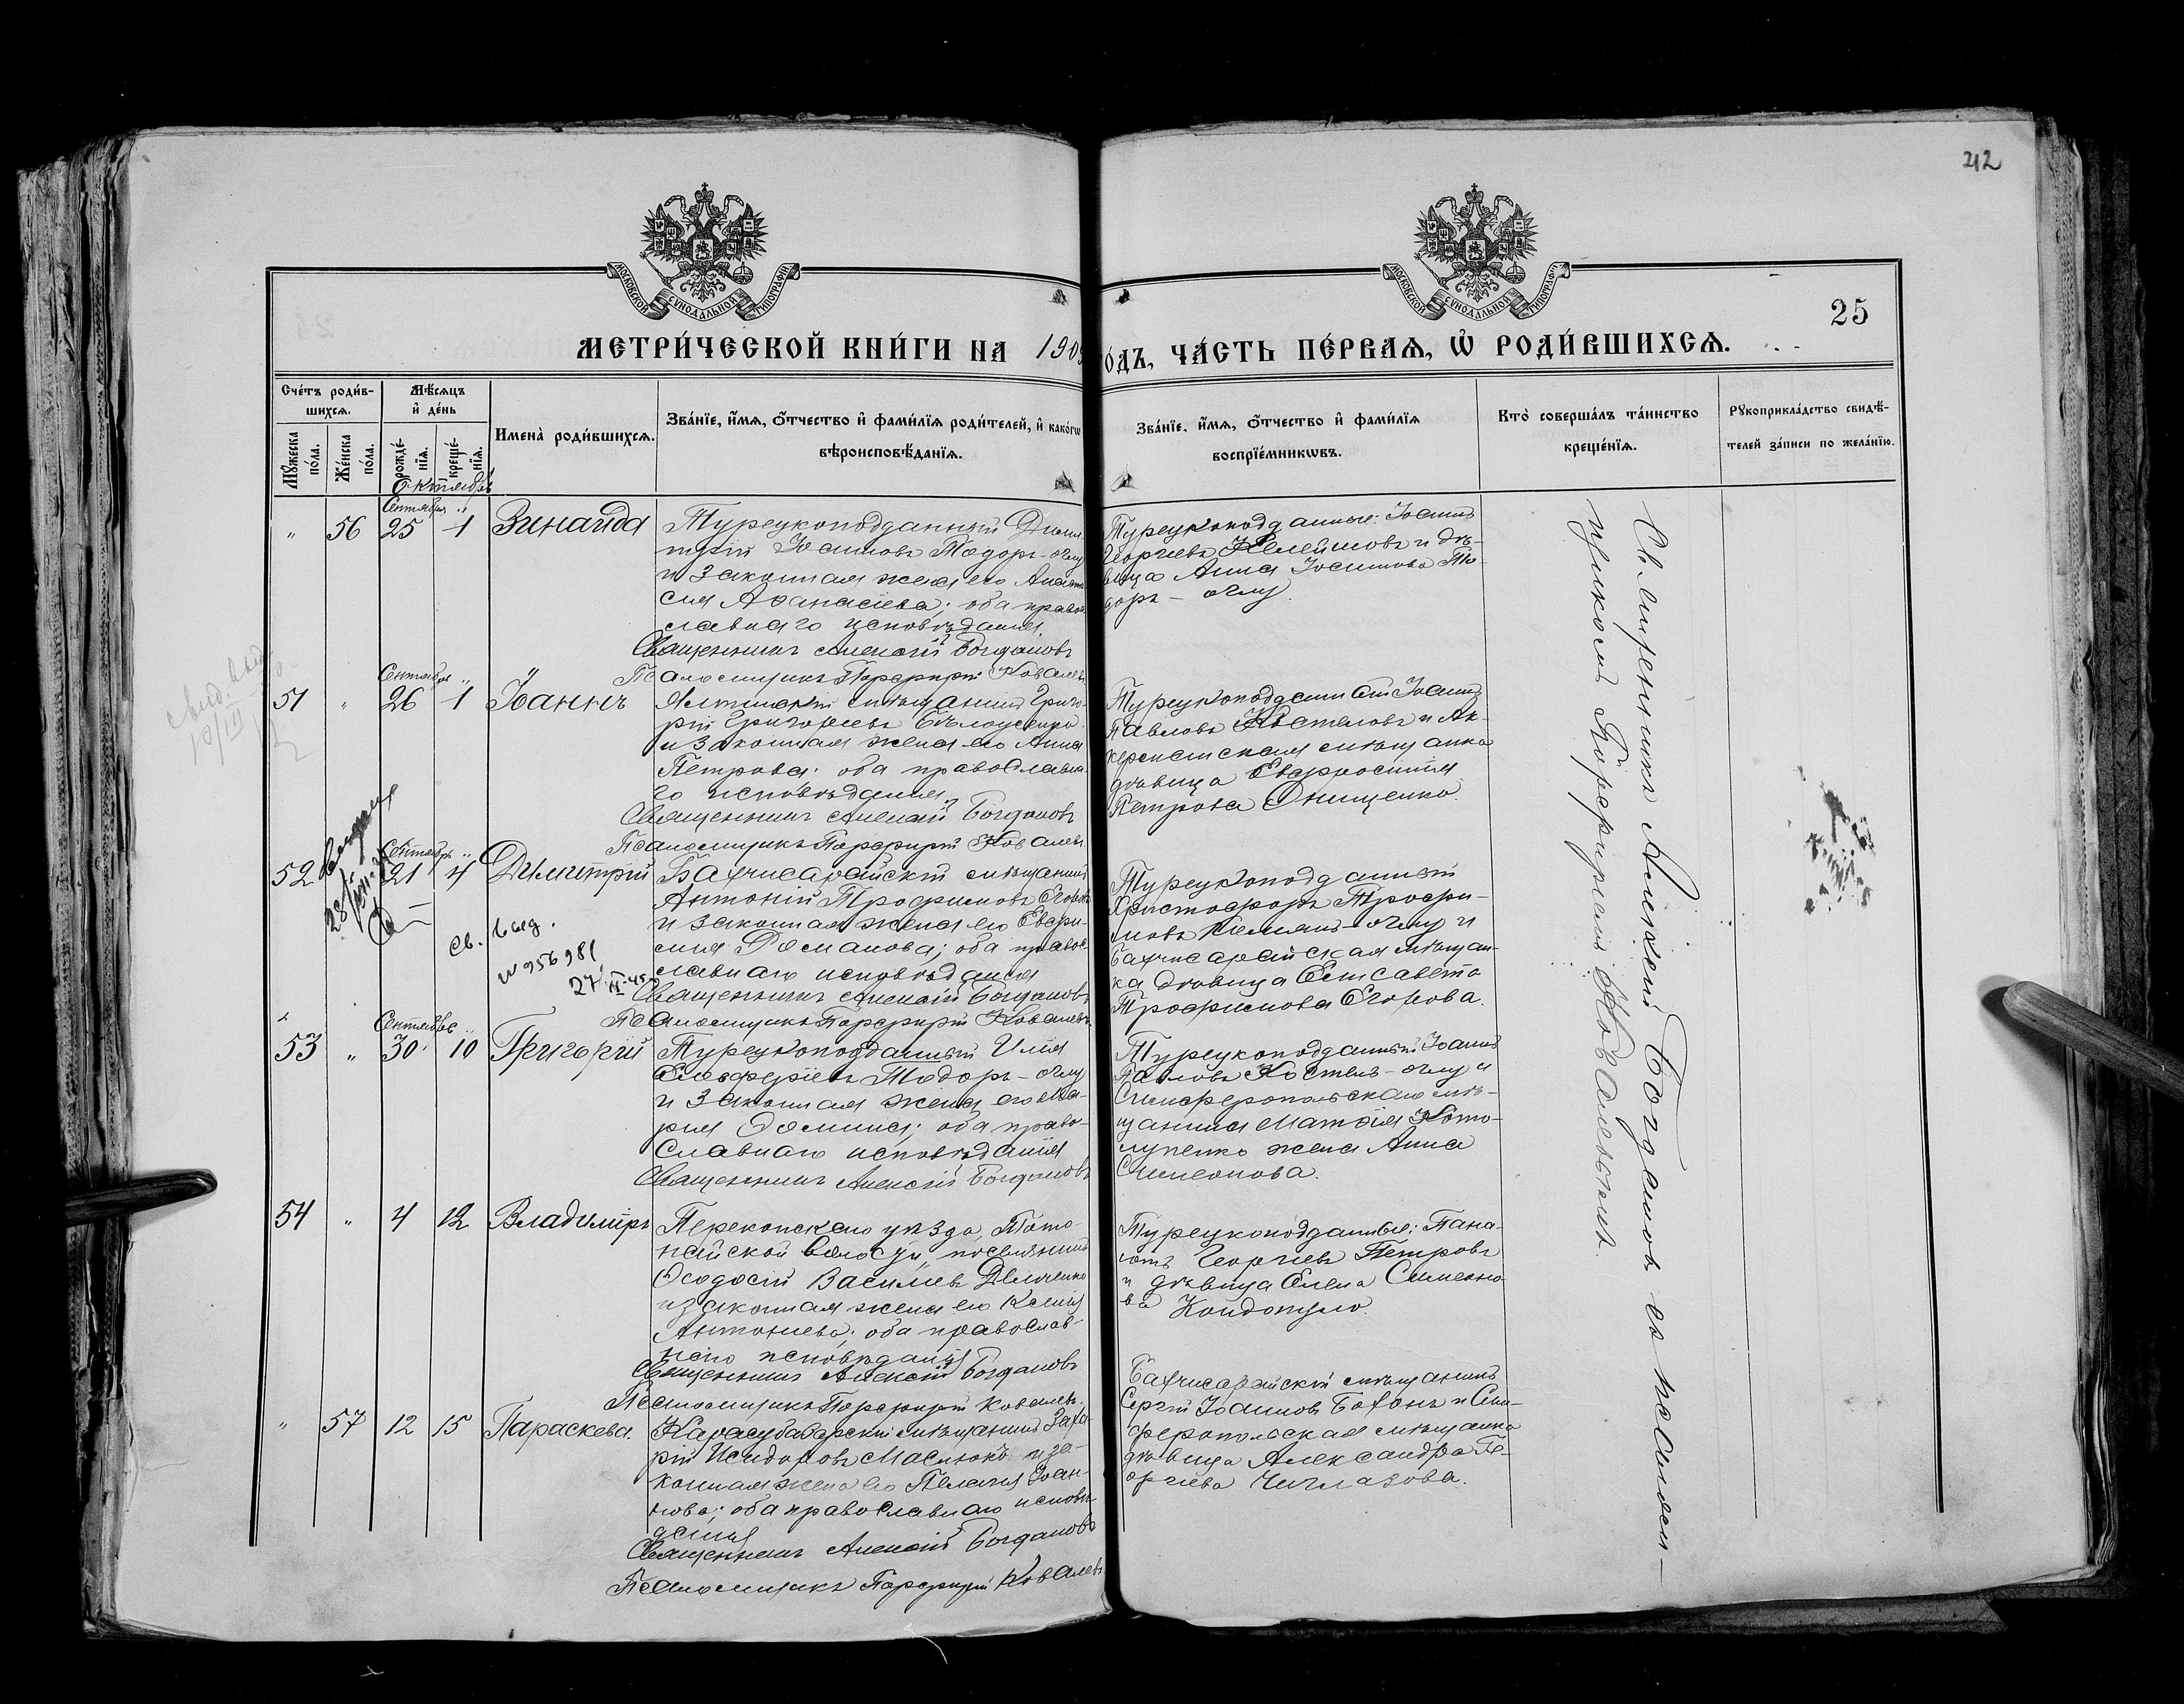 212
МОСКОВСКОЙ СѴНОДАЛЬНОЙ ТИПОГРАФІИ
МОСКОВСКОЙ СѴНОДАЛЬНОЙ ТИПОГРАФІИ
25
МЕТРИ́ЧЕСКОЙ КНИ́ГИ НА 1909
О́ДЪ, ЧА́СТЬ ПЕ́РВАѦ, Ѡ҆ РОДИ́ВШИХСѦ.
Сче́тъ роди́в-
шихсѧ.
Мꙋ́жеска по́ла.
Же́нска по́ла.
Мѣ́сѧцъ
и҆ де́нь
рожде́-
нїѧ.
креще́-
нїѧ.
Имена̀ роди́вшихсѧ.
Зва́нїе, и҆́мѧ, ѻ҆́тчество и҆ фами́лїѧ роди́телей, и҆ како́гѡ
вѣроисповѣ́данїѧ.
Зва́нїе, и҆́мѧ, ѻ҆́тчество и҆ фами́лїѧ
воспрїе́мникѡвъ.
Кто̀ соверша́лъ та́инство
креще́нїѧ.
Рꙋкоприкла́дство свидѣ́-
телей за́писи по жела́нїю.
Октябрь
Сентября "
" 56 25 1 Зинаида
Турецкоподданный Дими-
трій Іоанновъ Тодоръ-оглу
и законная жена его Анаста-
сія Аѳанасіева; оба право-
славнаго исповѣданія.
Священникъ Алексій Богдановъ
Псаломщикъ Порфирій Ковалевъ
Турецкоподданные: Іоаннъ
Георгіевъ Келеймовъ и дѣ-
вица Анна Іоаннова То-
доръ-оглу.
Сентября "
51 " 26 1 Іоаннъ
Ялтинскій мѣщанинъ Григо-
рій Григорьевъ
и законная жена его Анна
Петрова; оба православна-
го исповѣданія
Священникъ Алексій Богдановъ
Псаломщикъ Порфирій Ковалевъ
Турецкоподданный Іоаннъ
Павловъ и Ак-
керманская мѣщанка
дѣвица Евфросинія
Петрова Онищенко.
Сентября "
52 21 4 Димитрій
28
св. выд.
№ 956981
27
Бахчисарайскій мѣщанинъ
Антоній Трофимовъ Егоровъ
и законная жена его Евфро-
синія Романова; оба право-
славнаго исповѣданія
Священникъ Алексій Богдановъ
Псаломщикъ Порфирій Ковалевъ
Турецкоподданный
Христофоръ Трофи-
мовъ оглу и
Бахчисарайская мѣщан-
ка дѣвица Елисавета
Трофимова Егорова.
Сентября "
53 " 30 10 Григорій
Турецкоподданный Илія
Елевферіевъ Тодоръ-оглу
и законная жена его Ма-
рія Ѳомина; оба право-
славнаго исповѣданія
Священникъ Алексій Богдановъ
Турецкоподданный Іоаннъ
Павловъ Костель-оглу и
Симферопольскаго мѣ-
щанина Матѳія Кото-
лупенко жена Анна
Симеонова.
54 " 4 12 Владиміръ
Перекопскаго уѣзда,
волости, поселянинъ
Ѳеодосій Василіевъ Демченко
и законная жена его Ксенія
Антоніева; оба православ-
наго исповѣданія
Священникъ Алексій Богдановъ
Псаломщикъ Порфирій Ковалевъ.
Турецкоподданные: Пана-
іотъ Георгіевъ Петровъ
и дѣвица Елена Симеоно-
ва
" 57 12 15 Параскева.
Карасубазарскій мѣщанинъ Заха-
рій Исидоровъ Маслюкъ и за-
конная жена его Пелагія Іоан-
нова; оба православнаго исповѣ-
данія
Священникъ Алексій Богдановъ
Псаломщикъ Порфирій Ковалевъ
Бахчисарайскій мѣщанинъ
Сергій Іоанновъ и Сим-
феропольская мѣщанка
дѣвица Александра Ге-
оргіева
Священникъ Алексій Богдановъ съ псалом-
щикомъ Порфиріемъ Ковалевымъ.